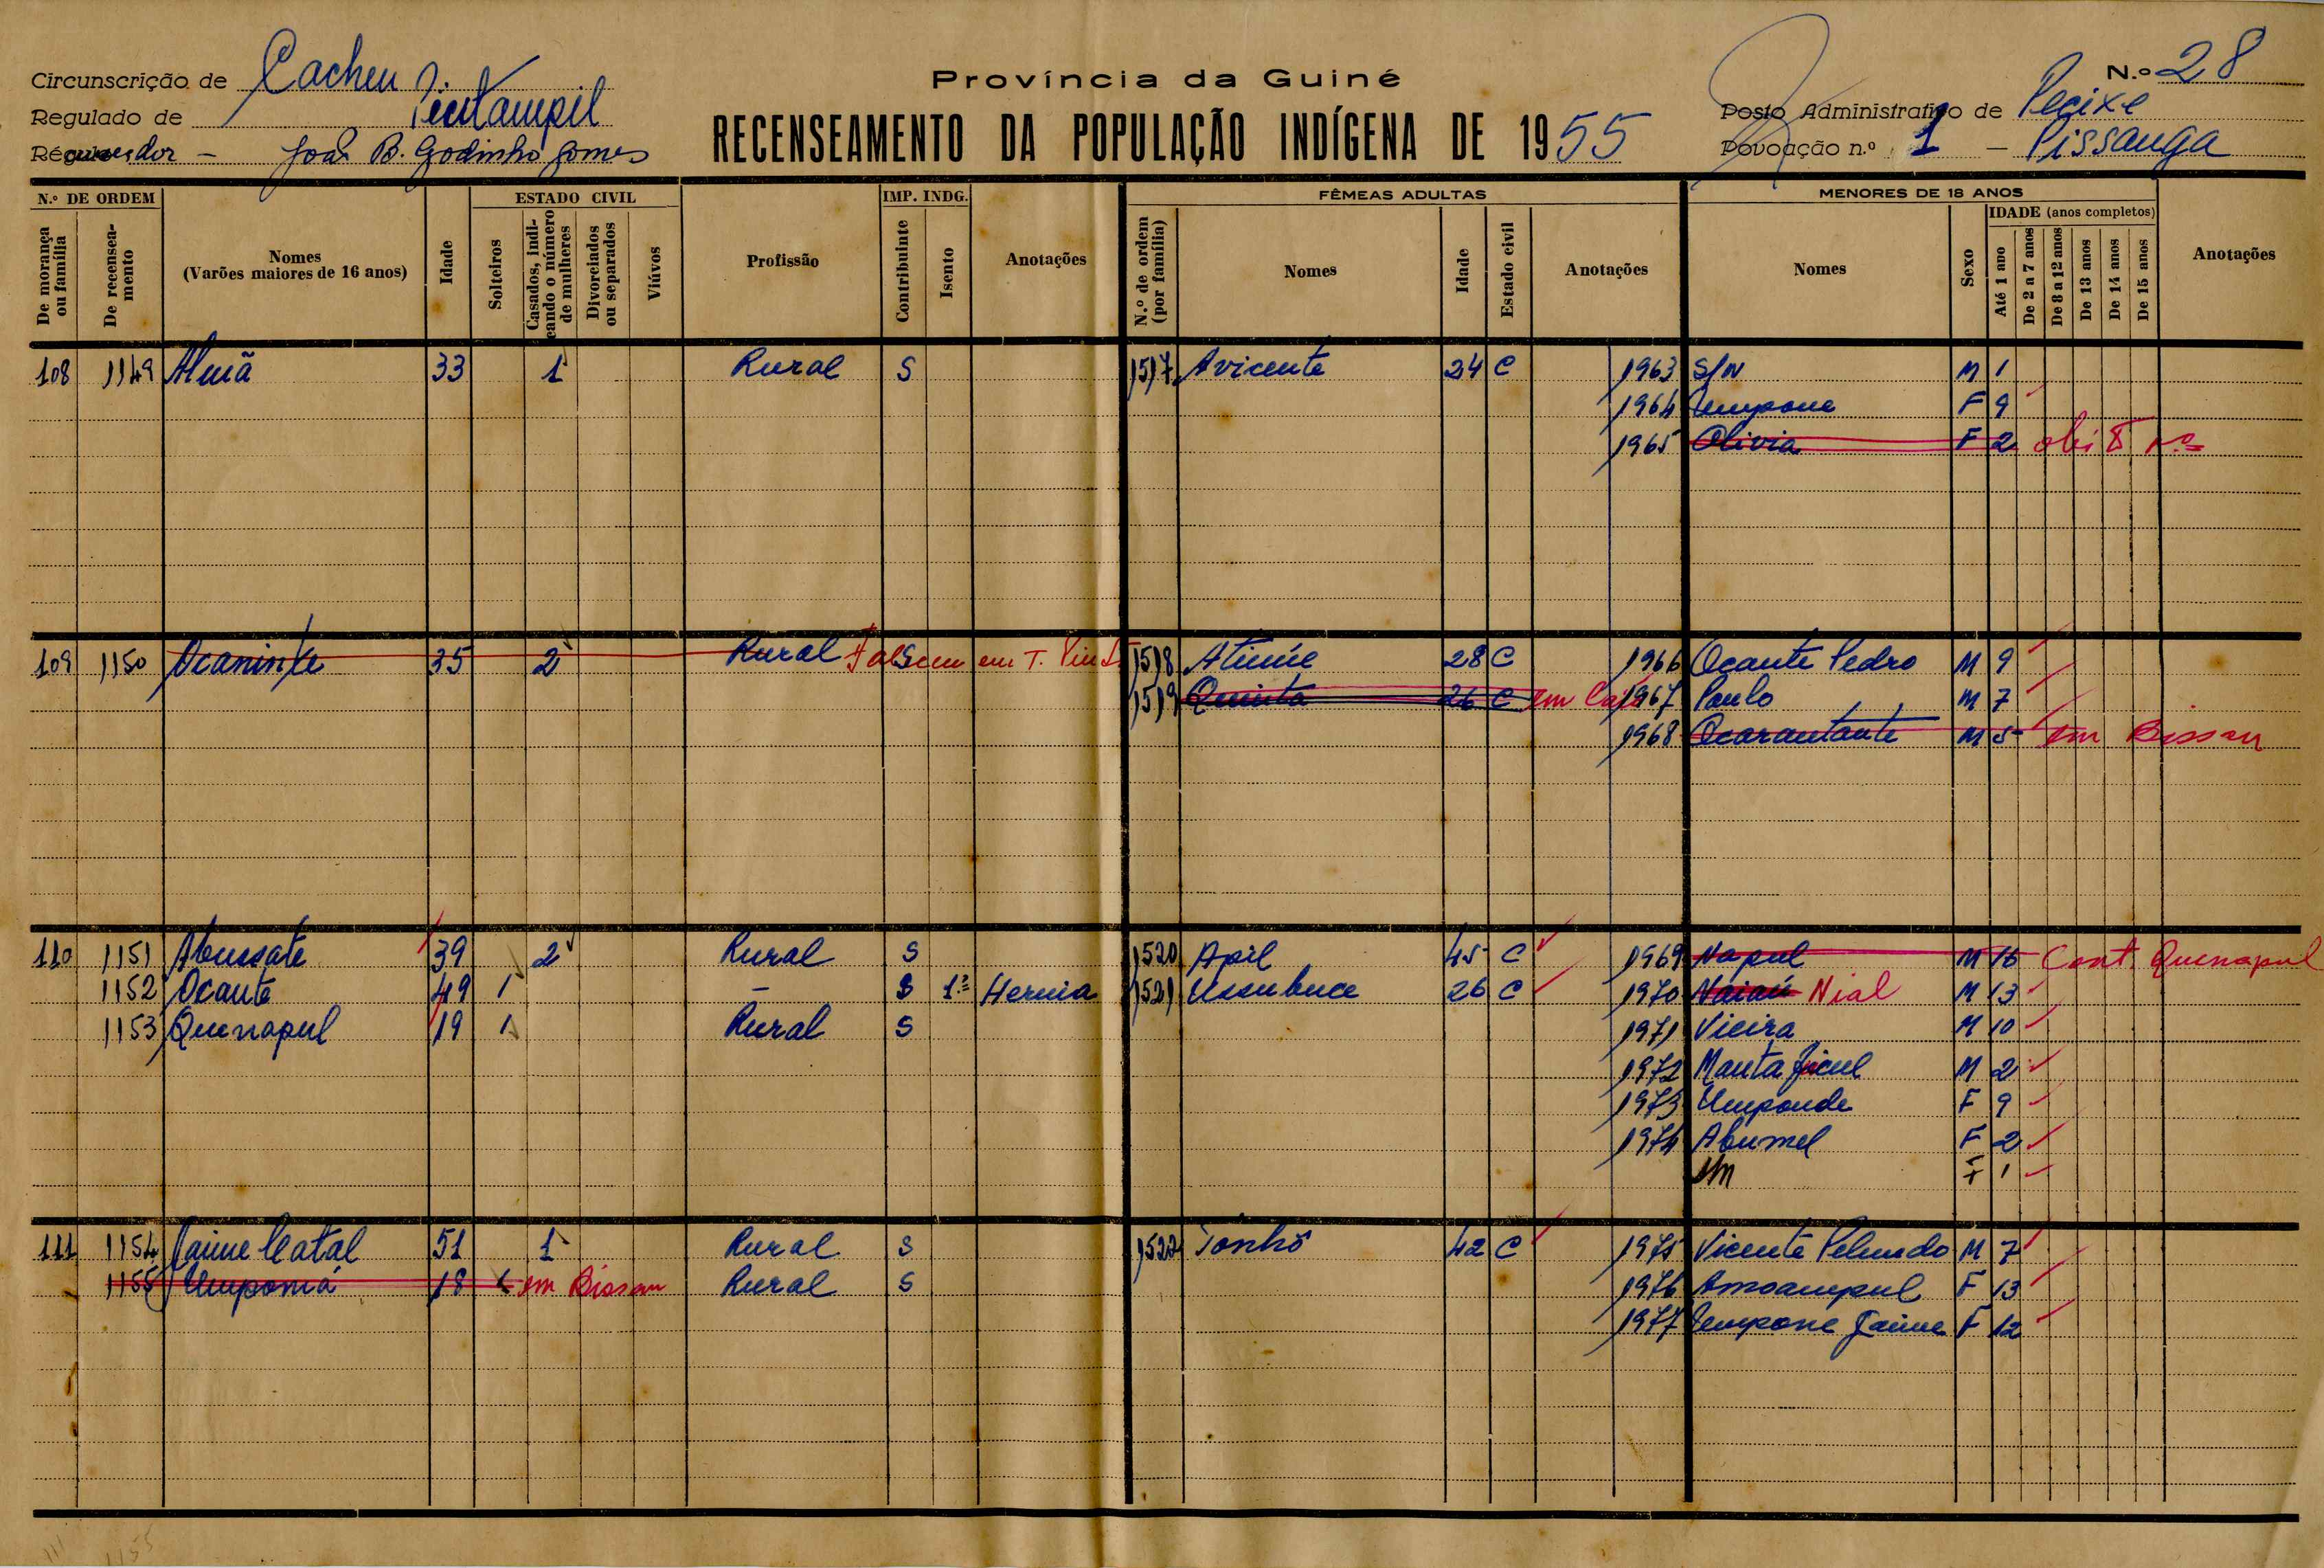 Circunscrição de Cacheu
Província da Guiné
N.º 28
Regulado de
Posto Administrativo de Pecixe
RECENSEAMENTO DA POPULAÇÃO INDÍGENA DE 1955
João B. Godinho Gomes
Povoação n.º 1 - Pissanga
N.º DE ORDEM
ESTADO CIVIL
IMP. INDG.
FÊMEAS ADULTAS
MENORES DE 18 ANOS
De morança ou família
De recensea-mento
Nomes (Varões maiores de 16 anos)
Idade
Solteiros
Casados, indi-cando o número de mulheres
Divorciados ou separados
Viúvos
Profissão
Contribuinte
Isento
Anotações
N.º de ordem (por família)
Nomes
Idade
Estado civil
Anotações
Nomes
Sexo
IDADE (anos completos)
Até 1 ano
De 2 a 7 anos
De 8 a 12 anos
De 13 anos
De 14 anos
De 15 anos
Anotações
108 1149 33 1 Rural S 1517 Avicente 24 C 1963 S/N M 1
1964 Umpone F 9
1965 Olivia F 2
109 1150 Ocaninte 35 2 Rural S Faleceu em T. 1518 28 C 1966 Ocante Pedro M 9
1519 Quinta 26 C em 1967 Paulo M 7
1968 Ocarantante M 5 em Bissau
110 1151 Abussate 39 2 Rural S 1520 Apil 45 C 1969 Napul M 16 Cont. Quenapul
1152 Ocante 49 1 - S 1.º Hernia 1521 26 C 1970 Naiaú Nial M 13
1153 Quenapul 19 1 Rural S 1971 Vieira M 10
1972 Manta M 2
1973 Umponde F 9
1974 Abumel F 2
F 1
111 1154 Jaime Catal 51 1 Rural S 1522 Tonhô 42 C 1975 Vicente M 7
1155 Umpomá 18 em Bissau Rural S 1976 Amoampul F 13
1977 Umpone Jaime F 12
111 1155